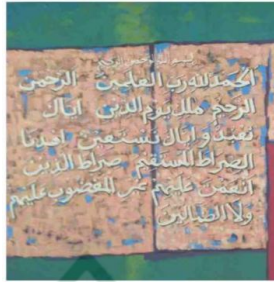 بسم الله الرحمن الرحيم
الحمد لله رب العلمين الرحمن
الرحيم ملك يوم الدين اياك
نعبد و اياك نستعين اهدنا
الصراط المستقيم صراط الذين
انعمت عليهم غير المغضوب عليهم
ولا الضالين